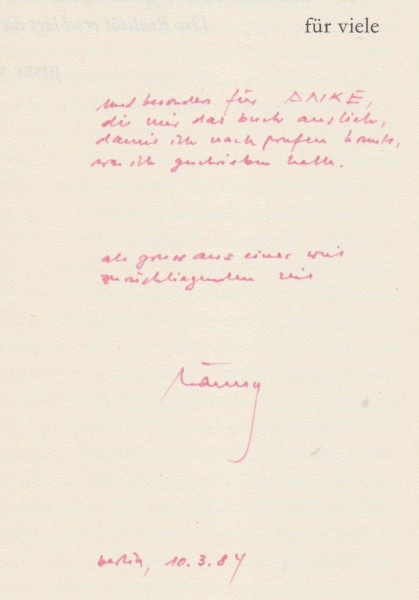 für viele
und besonders für ANKE,
die mir das buch auslieh,
damit ich nach prüfen konnte,
was ich geschrieben hatte.
als gruss aus einer weit
zurückliegenden zeit
berlin, 10.3.84